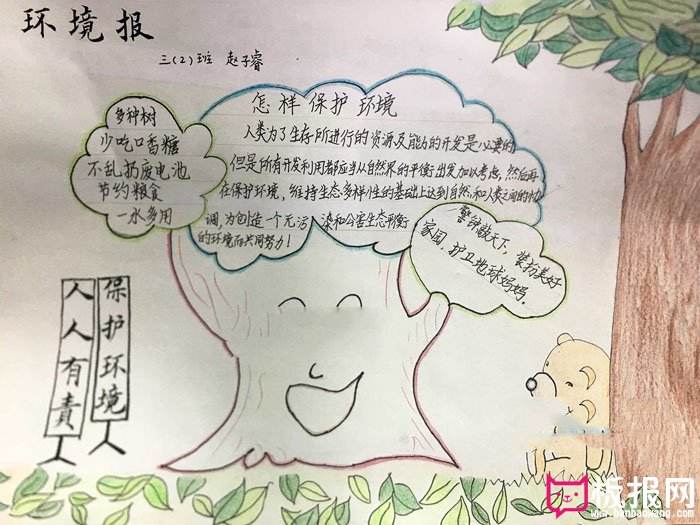 环境报
三(2)班 赵子睿
怎样保护环境
人类为了生存所进行的资源及能的开发是必要的
但是所有开发利用都应当从自然界的平衡出发加以考虑,然后再
在保护环境,维持生态多样性的基础上达到自然和人类之间的协
调,为创造一个无污染和公害生态平衡
的环境而共同努力!
多种树
少吃口香糖
不乱扔废电池
节约粮食
一水多用
警钟敲天下,装扮美好
家园,护卫地球妈妈.
保护环境
人人有责
板报网
www.banbaowang.com